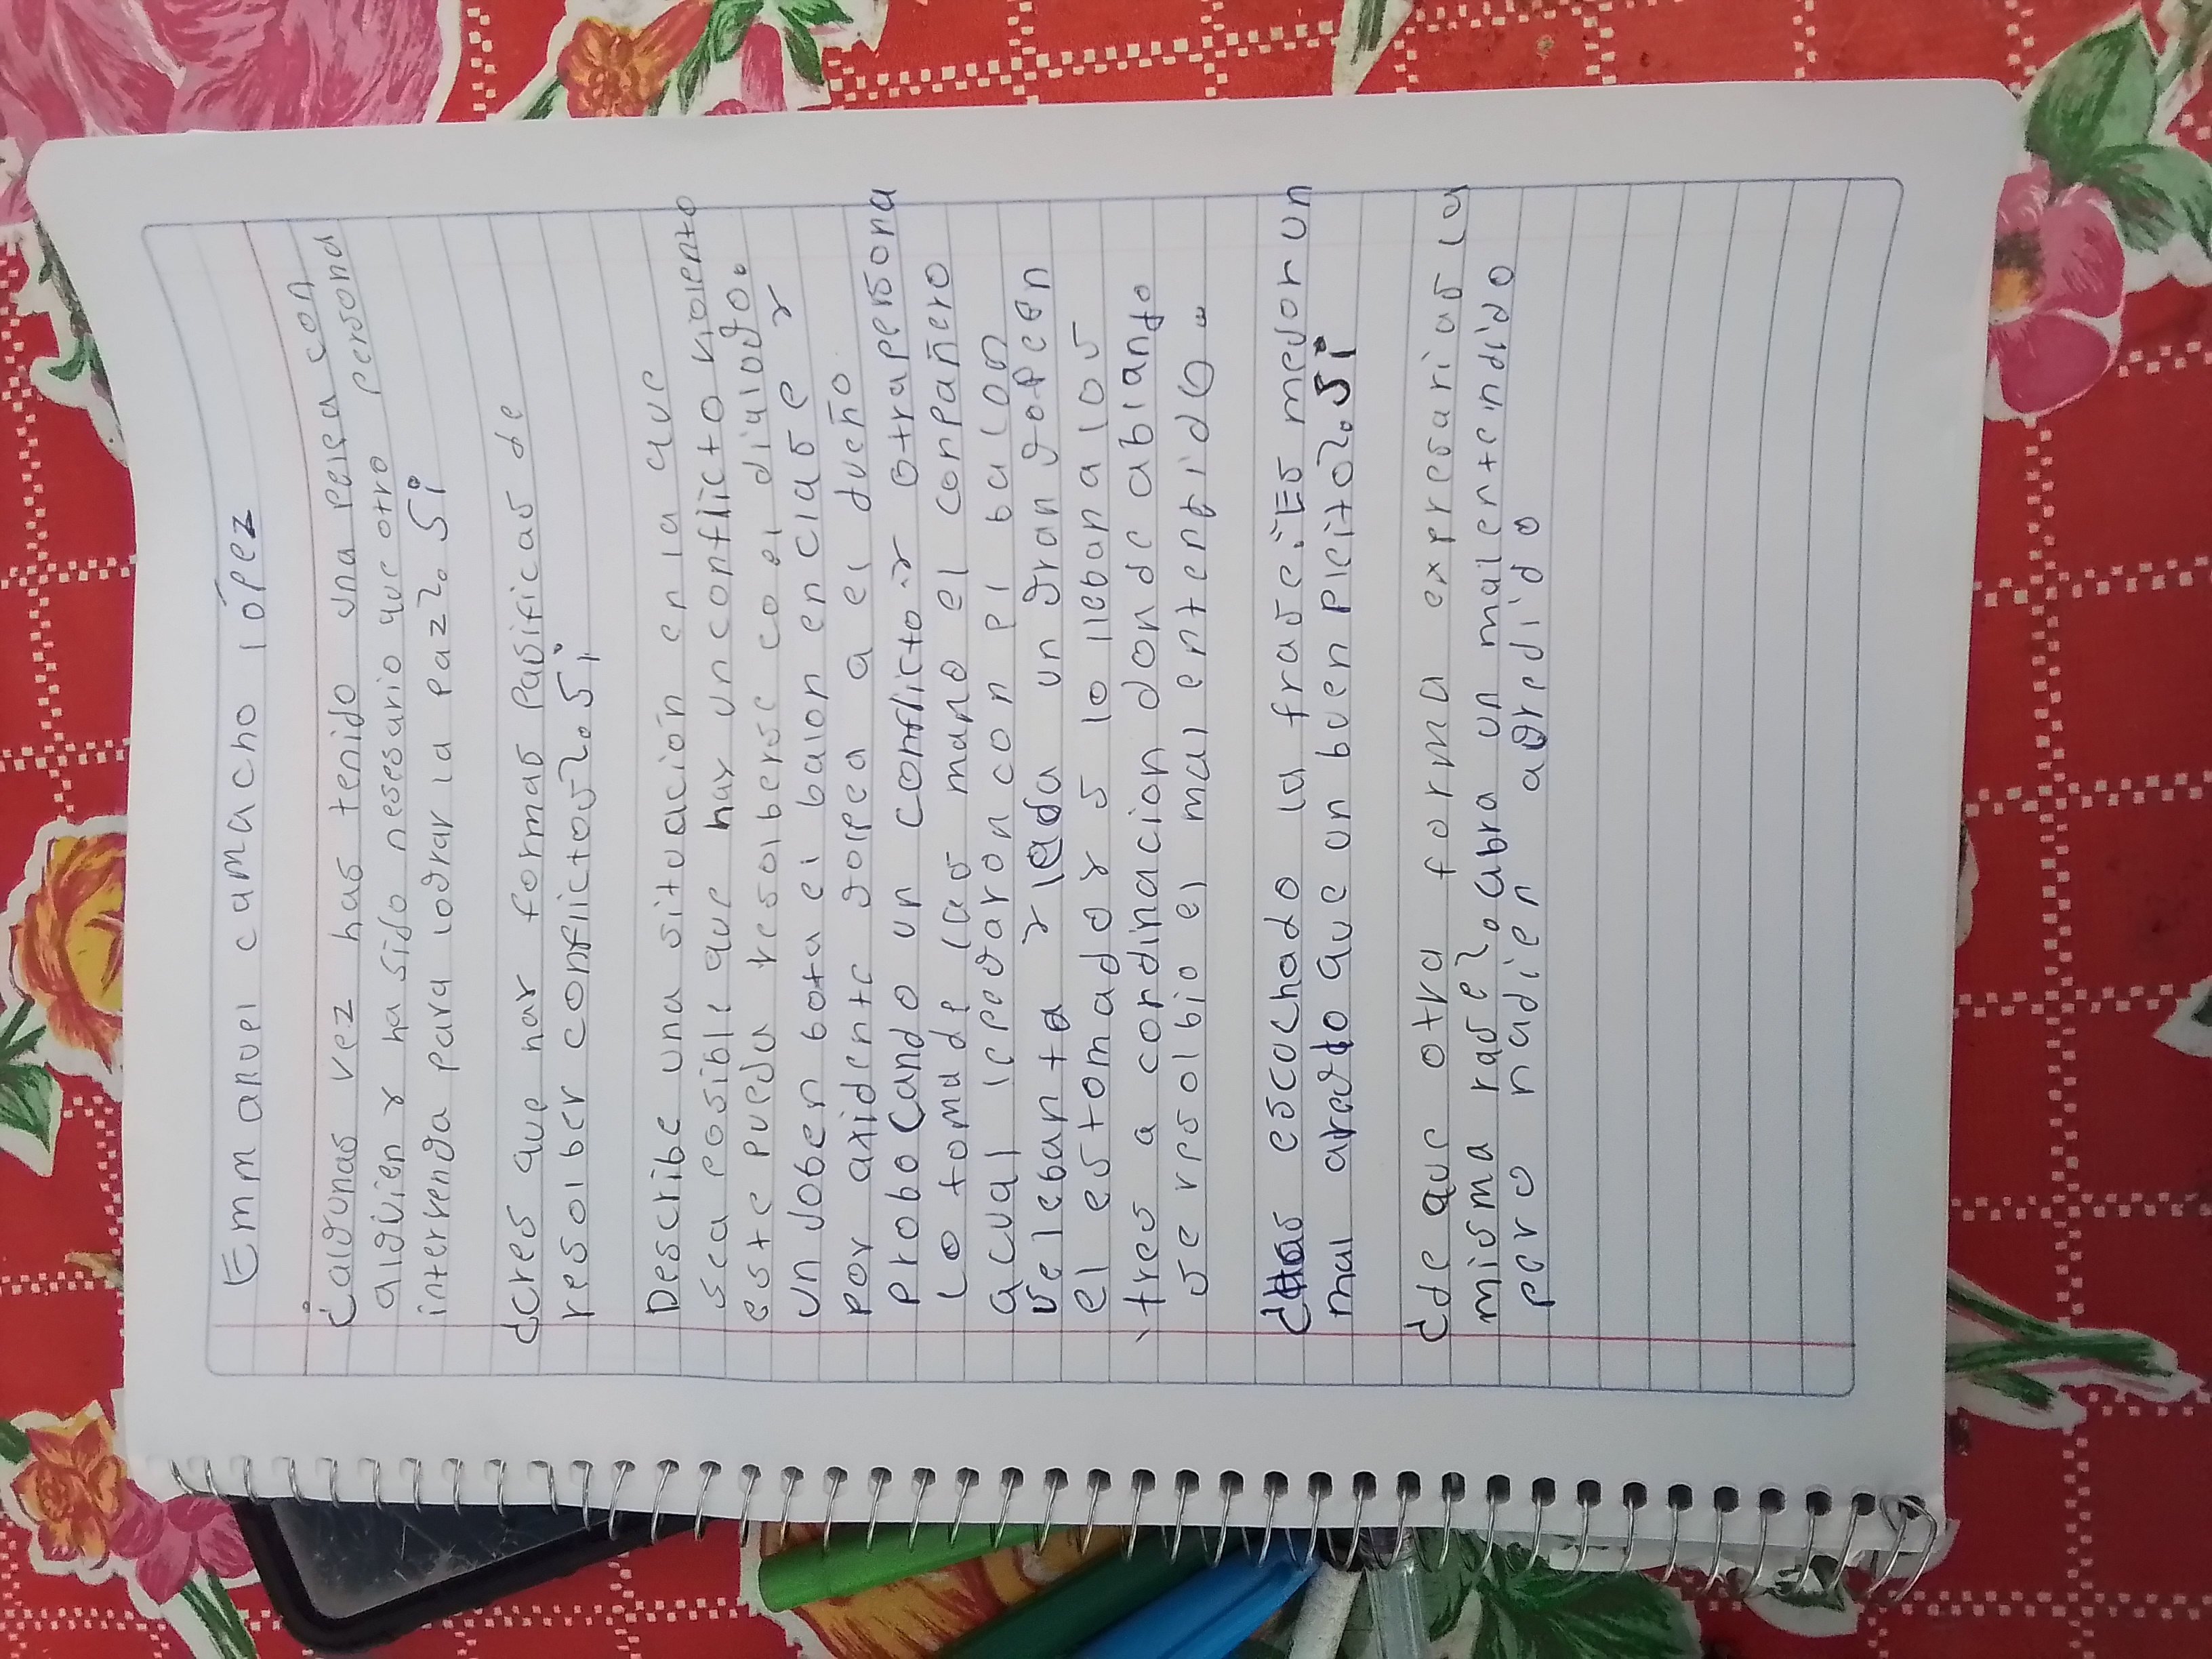 Emmanuel camacho lópez
¿algunas vez has tenido una pelea con
alguien y ha sido nesesario que otro persona
intervenga para lograr la paz?. Si
¿cres que hay formas pasificas de
resolber conflictos?. Si
Describe una situación en la que
sea posible que hay un conflicto violento
este pueda resolberse co el dialogo.
un Joben bota el balon en clase y
por axidente golpea a el dueño
probocando un conflicto y otra persona
lo toma de las mano el conpañero
a cual le pegaron con el balon
se lebanta y le da un gran golpe en
el estomado y s lo lleban a los
tres a cordinacion donde ablando
se resolbio el mal entendido.
¿Has escochado la frase: Es mejor un
mal areglo que un buen pleito?. Si
¿de que otra forma expresarias la
misma rase?. abra un malentendido
pero nadien agredido